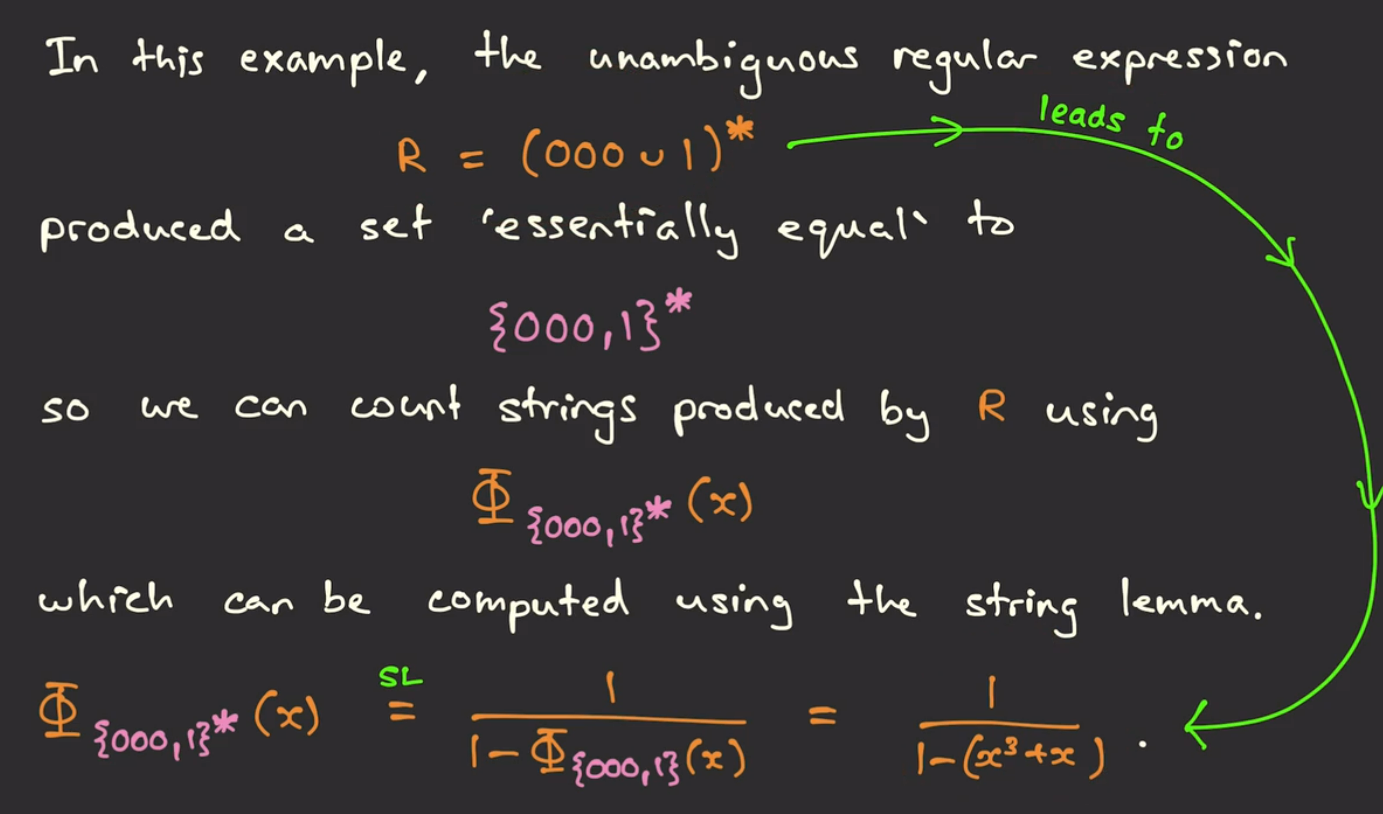 In this example, the unambiguous regular expression
R = (000 ∪ 1)*
leads to
produced a set 'essentially equal` to
{000,1}*
so we can count strings produced by R using
Φ_{000,1}* (x)
which can be computed using the string lemma.
Φ_{000,1}* (x) SL = 1 / (1 - Φ_{000,1}(x)) = 1 / (1-(x³+x)) .